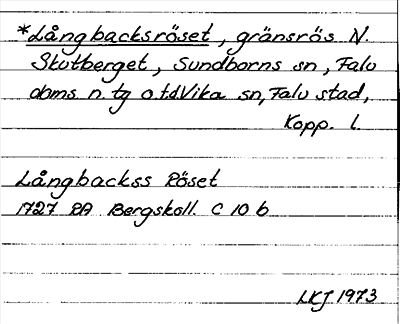 *Långbacksröset, gränsrös N.
Skutberget, Sundborns sn, Falu
doms. n. tg o.t.d Vika sn, Falu stad,
Kopp. l.
Långbackss Röset
1727 RA Bergskoll. C 10 b
LKJ 1973